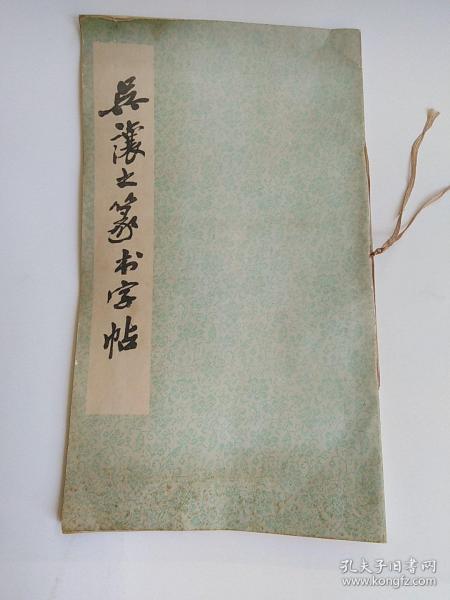 吳瀼之篆书字帖
孔夫子旧书网
www.kongfz.com